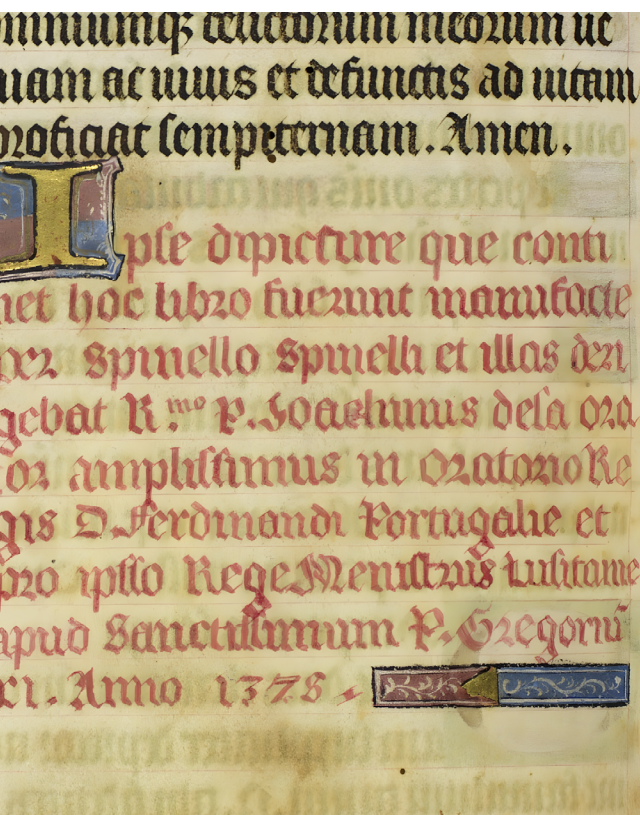 omniumq; delictorum meorum ue
niam ac uiuis et defunctis ad uitam
proficiat sempiternam. Amen.
Ipse dipicture que conti
net hoc libro fuerunt manufacte
per Spinello Spinelli et illas deri
gebat R.mo P. Joachinus dela ora
tor amplissimus in oratorio Re
gis D. Ferdinandi Portugalie et
pro ipso Rege Menistrus Lusitanie
apud Sanctissimum P. Gregoriū
xi. Anno 1378.